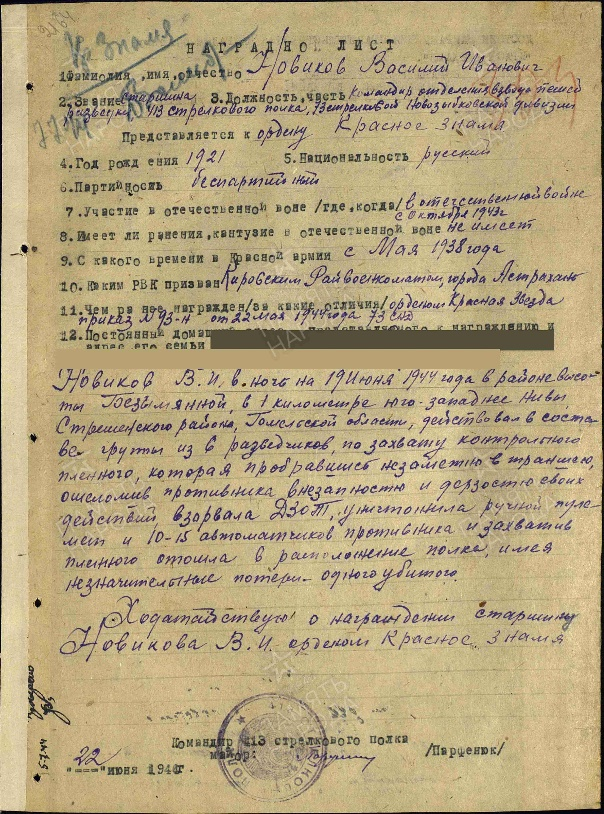 Кр Знамя
НАГРАДНОЙ ЛИСТ
1 Фамилия, имя, отчество Новиков Василий Иванович
2. Звание старшина 3. Должность, часть командир отделения взвода пешей
разведки 413 стрелкового полка, 73 стрелковой Новозыбковской дивизии
Представляется к ордену Красное Знамя
4. Год рожд ения 1921 5. Национальность русский
6. Партийность беспартийный
7. Участие в отечественной воне /где, когда/ в отечественной войне
с октября 1943 г
8. Имеет ли ранения, кантузие в отечественной воне не имеет
9. С какого времени в Красной армии с Мая 1938 года
10. Каким РВК призван Кировским Райвоенкоматом, города Астрахань
11. Чем ра нее награжден /за какие отличия/ орденом Красная Звезда
приказ № 93-н от 22 мая 1944 года 73 сд
12. Постоянный домаш представляемого к награждению и
адрес его семьи
Новиков В.И. в ночь на 19 Июня 1944 года в районе высо-
ты Безымянной, в 1 километре юго-западнее Нивы
Стрешенского района, Гомельской области, действовал в соста-
ве группы из 6 разведчиков, по захвату контрольного
пленного, которая пробравшись незаметно в траншею,
ошеломив противника внезапностью и дерзостью своих
действий, взорвала ДЗОТ, уничтожила ручной пуле-
мет и 10-15 автоматчиков противника и захватив
пленного отошла в расположение полка, имея
незначительные потери - одного убитого.
Ходатайствую о награждении старшину
Новикова В.И. орденом Красное Знамя
Командир 413 стрелкового полка
майор: /Парфенюк/
"22" июня 1944г.